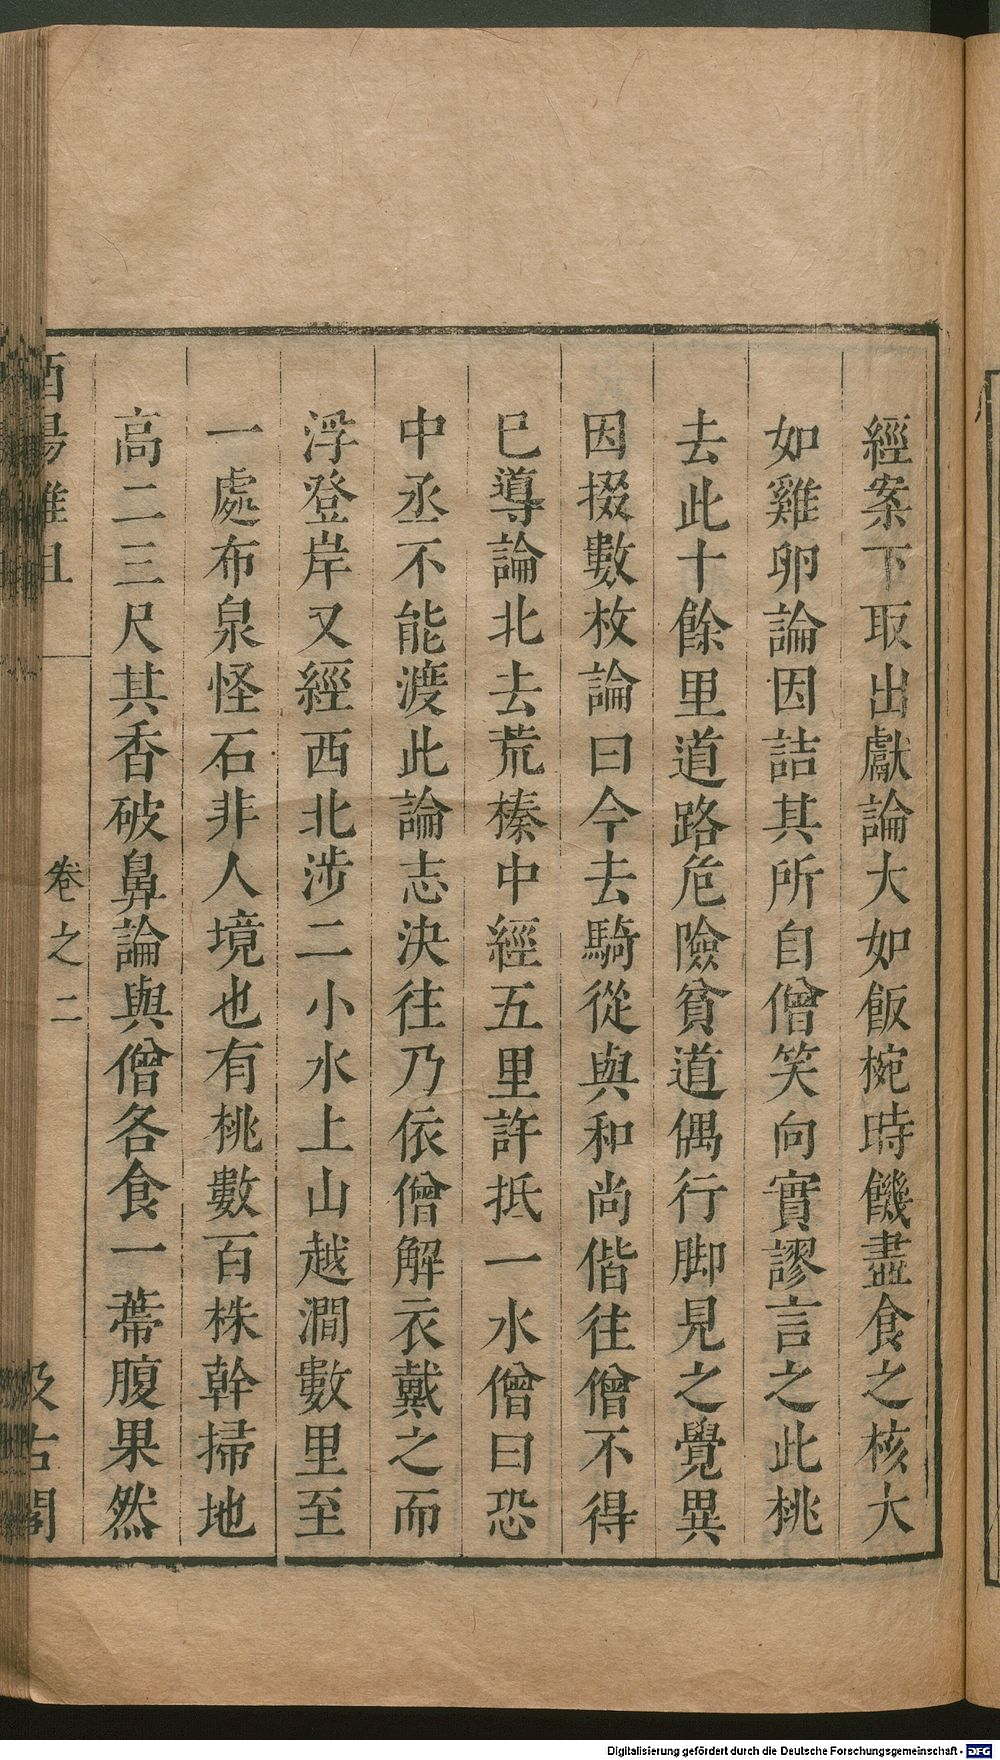 經案下取出獻論大如飯椀時饑盡食之核大
如雞卵論因詰其所自僧笑向實謬言之此桃
去此十餘里道路危險貧道偶行脚見之覺異
因掇數枚論曰今去騎從與和尚偕往僧不得
已導論北去荒榛中經五里許抵一水僧曰恐
中丞不能渡此論志決往乃依僧解衣戴之而
浮登岸又經西北涉二小水上山越澗數里至
一處布泉怪石非人境也有桃數百株幹掃地
高二三尺其香破鼻論與僧各食一蔕腹果然
酉陽雜俎
卷之二
汲古閣
Digitalisierung gefördert durch die Deutsche Forschungsgemeinschaft - DFG